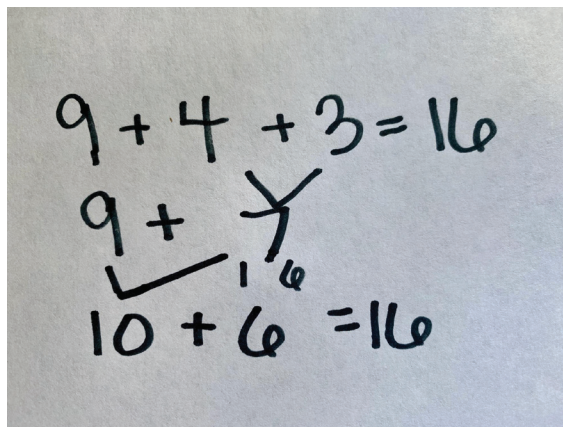 9 + 4 + 3 = 16
9 + 7
1 6
10 + 6 = 16